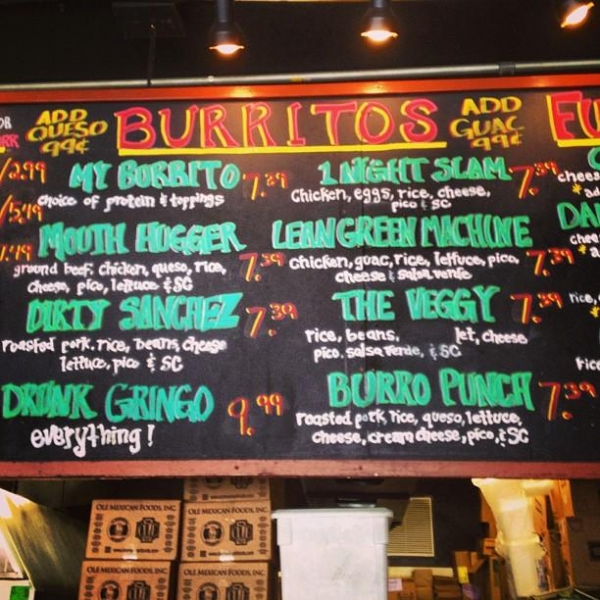 OR
ADD
QUESO
99¢
BURRITOS
ADD
GUAC
99¢
FU
/2.99
MY BORRITO 7.39
choice of protein & toppings
/5.49
MOUTH HUGGER 7.39
ground beef, chicken, queso, rice,
cheese, pico, lettuce & SC
DIRTY SANCHEZ 7.39
roasted pork, rice, beans, cheese
lettuce, pico & SC
DRUNK GRINGO 9.99
everything!
1 NIGHT SLAM 7.39
Chicken, eggs, rice, cheese,
pico & SC
LEAN GREEN MACHINE 7.39
chicken, guac, rice, lettuce, pico,
cheese & salsa verde
THE VEGGY 7.39
rice, beans, let, cheese
pico, salsa verde, & SC
BURRO PUNCH 7.39
roasted pork, rice, queso, lettuce,
cheese, cream cheese, pico, & SC
chees
DA
chee
rice,
rice
OLE MEXICAN FOODS, INC.
OLE MEXICAN FOODS, INC.
OLE MEXICAN FOODS, INC.
OLE MEXICAN FOODS, INC.